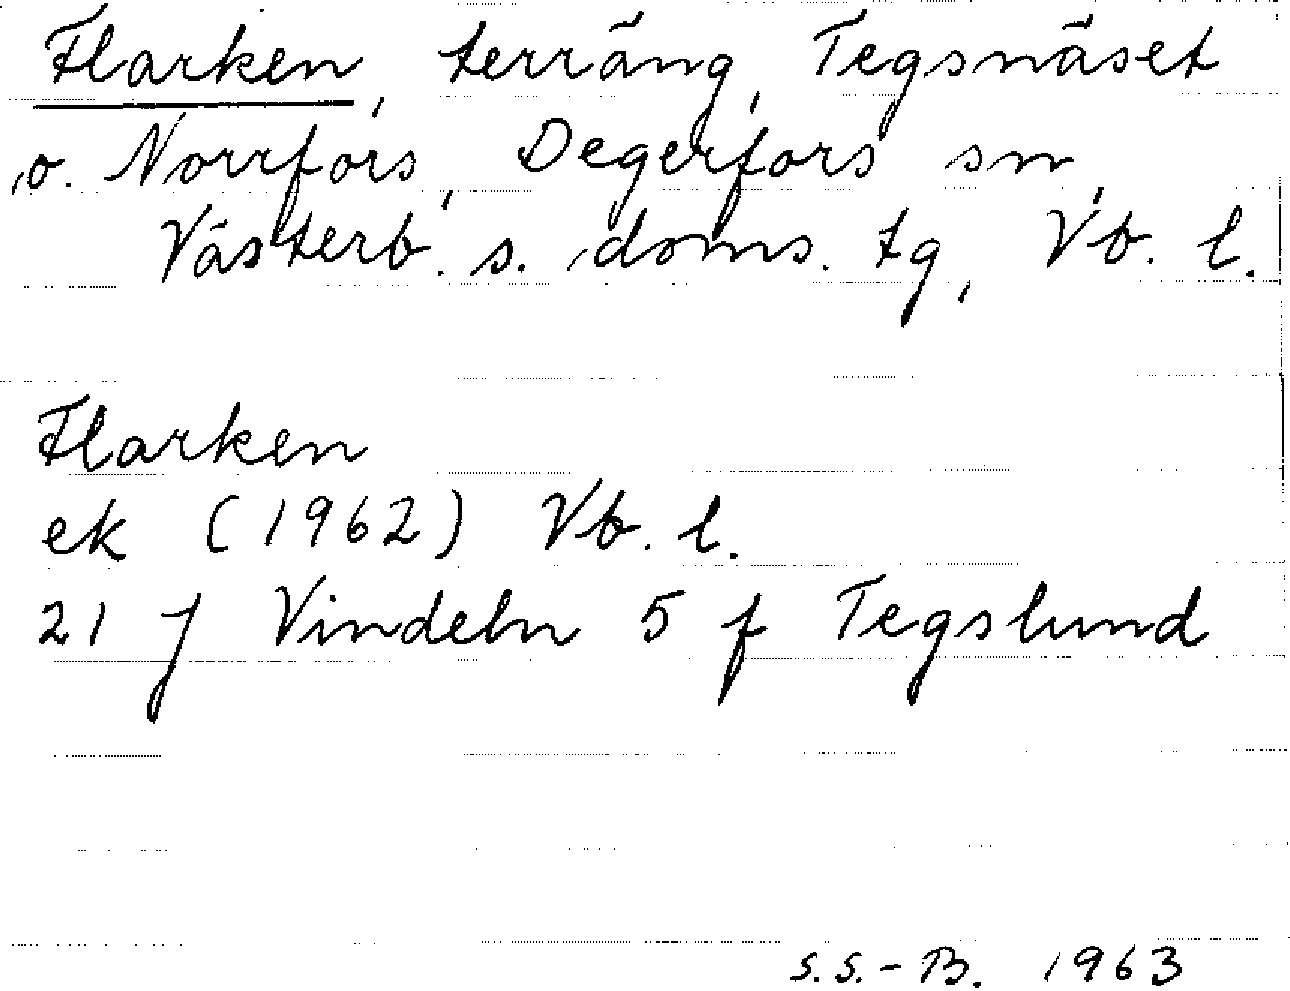 Flarken, terräng, Tegsnäset
o. Norrfors, Degerfors sn,
Västerb. s. doms. tg, Vb. l.
Flarken
ek (1962) Vb. l.
21 J Vindeln 5 f Tegslund
S.S.-B. 1963